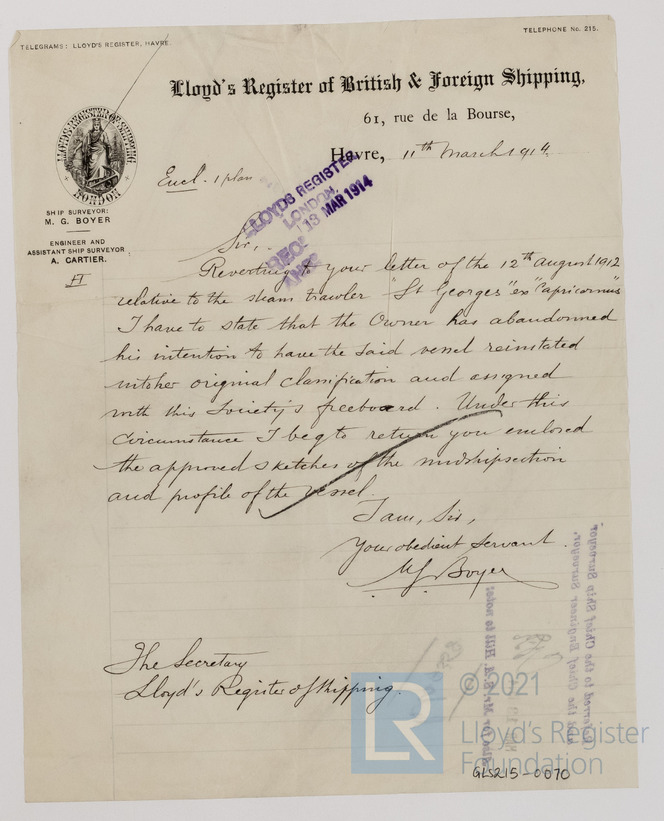 TELEGRAMS: LLOYD'S REGISTER, HAVRE.
TELEPHONE No. 215.
Lloyd's Register of British & Foreign Shipping,
61, rue de la Bourse,
Havre, 11th March 1914
LLOYD'S REGISTER OF SHIPPING
LONDON
SHIP SURVEYOR:
M. G. BOYER
ENGINEER AND
ASSISTANT SHIP SURVEYOR
A. CARTIER.
Encl. 1 plan
LLOYDS REGISTER
LONDON.
13 MAR 1914
Sir,
Reverting to your letter of the 12th August 1912
relative to the steam trawler "St Georges" ex "Capricornus"
I have to state that the Owner has abandonned
his intention to have the said vessel reinstated
into her original classification and assigned
with this Society's freeboard. Under this
circumstance I beg to return you enclosed
the approved sketches of the midshipsection
and profile of the vessel.
I am, Sir,
Your obedient servant.
M G Boyer
The Secretary
Lloyd's Register of Shipping.
Referred to the Chief Ship Surveyor
and the Chief Engineer Surveyor.
LR
© 2021
Lloyd's Register
Foundation
GLS215-0070